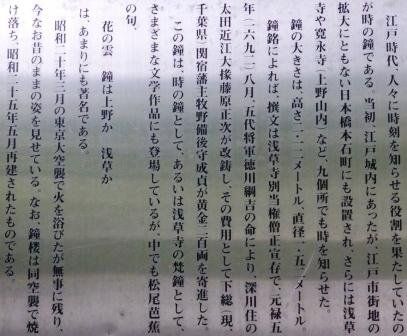 江戸時代、人々に時刻を知らせる役割を果たしていたの
が時の鐘である。当初、江戸城内にあったが、江戸市街地の
拡大にともない日本橋本石町にも設置され、さらには浅草
寺や寛永寺(上野山内)など、九個所でも時を知らせた。
鐘の大きさは、高さ二・一二メートル、直径一・五二メートル。
鐘銘によれば、撰文は浅草寺別当権僧正宣存で、元禄五
年(一六九二)八月、五代将軍徳川綱吉の命により、深川住の
太田近江大掾藤原正次が改鋳し、その費用として下総(現、
千葉県)関宿藩主牧野備後守成貞が黄金二百両を寄進した。
この鐘は、時の鐘として、あるいは浅草寺の梵鐘として、
さまざまな文学作品にも登場しているが、中でも松尾芭蕉
の句、
花の雲 鐘は上野か 浅草か
は、あまりにも著名である。
昭和二十年三月の東京大空襲で火を浴びたが無事に残り、
今なお昔のままの姿を見せている。なお、鐘楼は同空襲で焼
け落ち、昭和二十五年五月再建されたものである。